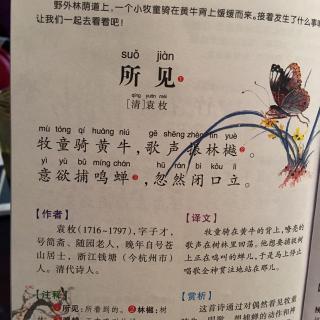 野外林荫道上,一个小牧童骑在黄牛背上缓缓而来。接着发生了什么事
让我们一起去看看吧!
suǒ jiàn
所见❶
qīng yuán méi
[清]袁枚
mù tóng qí huáng niú gē shēng zhèn lín yuè
牧童骑黄牛,歌声振林樾❷。
yì yù bǔ míng chán hū rán bì kǒu lì
意欲捕鸣蝉❸,忽然闭口立。
【作者】
袁枚(1716~1797),字子才,
号简斋、随园老人,晚年自号苍
山居士,浙江钱塘(今杭州市)
人。清代诗人。
【注释】
❶所见:所看到的。❷林樾:树
【译文】
牧童骑在黄牛的背上,嘹亮的
歌声在树林里回荡。他想要捕捉树
上正在鸣叫的蝉儿,于是马上停止
唱歌全神贯注地站在那儿。
【赏析】
这首诗通过对偶然看见牧童